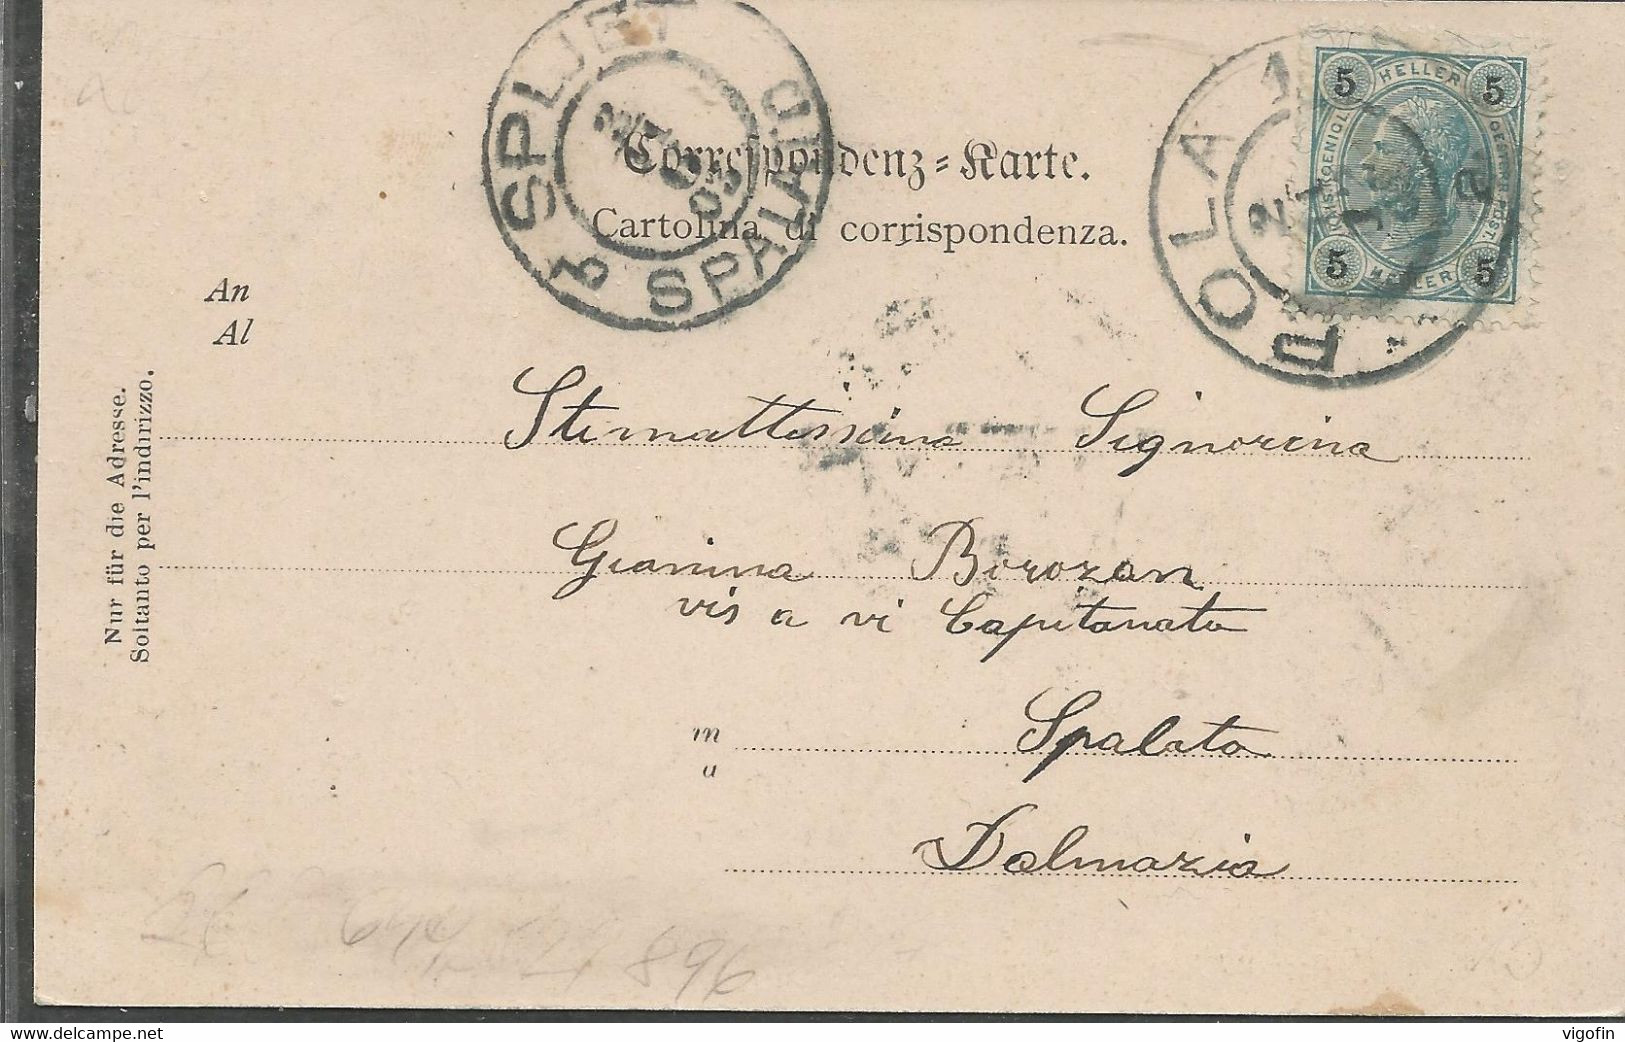 SPLJET
SPALATO
POLA 1
5 HELLER 5
KAIS. KOENIGL.
OESTERR. POST.
5 HELLER 5
Correspondenz-Karte.
Cartolina di corrispondenza.
An
Al
Nur für die Adresse.
Soltanto per l'indurizzo.
Stimattissima Signorina
Gianina Borozan
vis a vi Capitanata
m
a
Spalato
Dalmazia
896
delcampe.net
vigofin